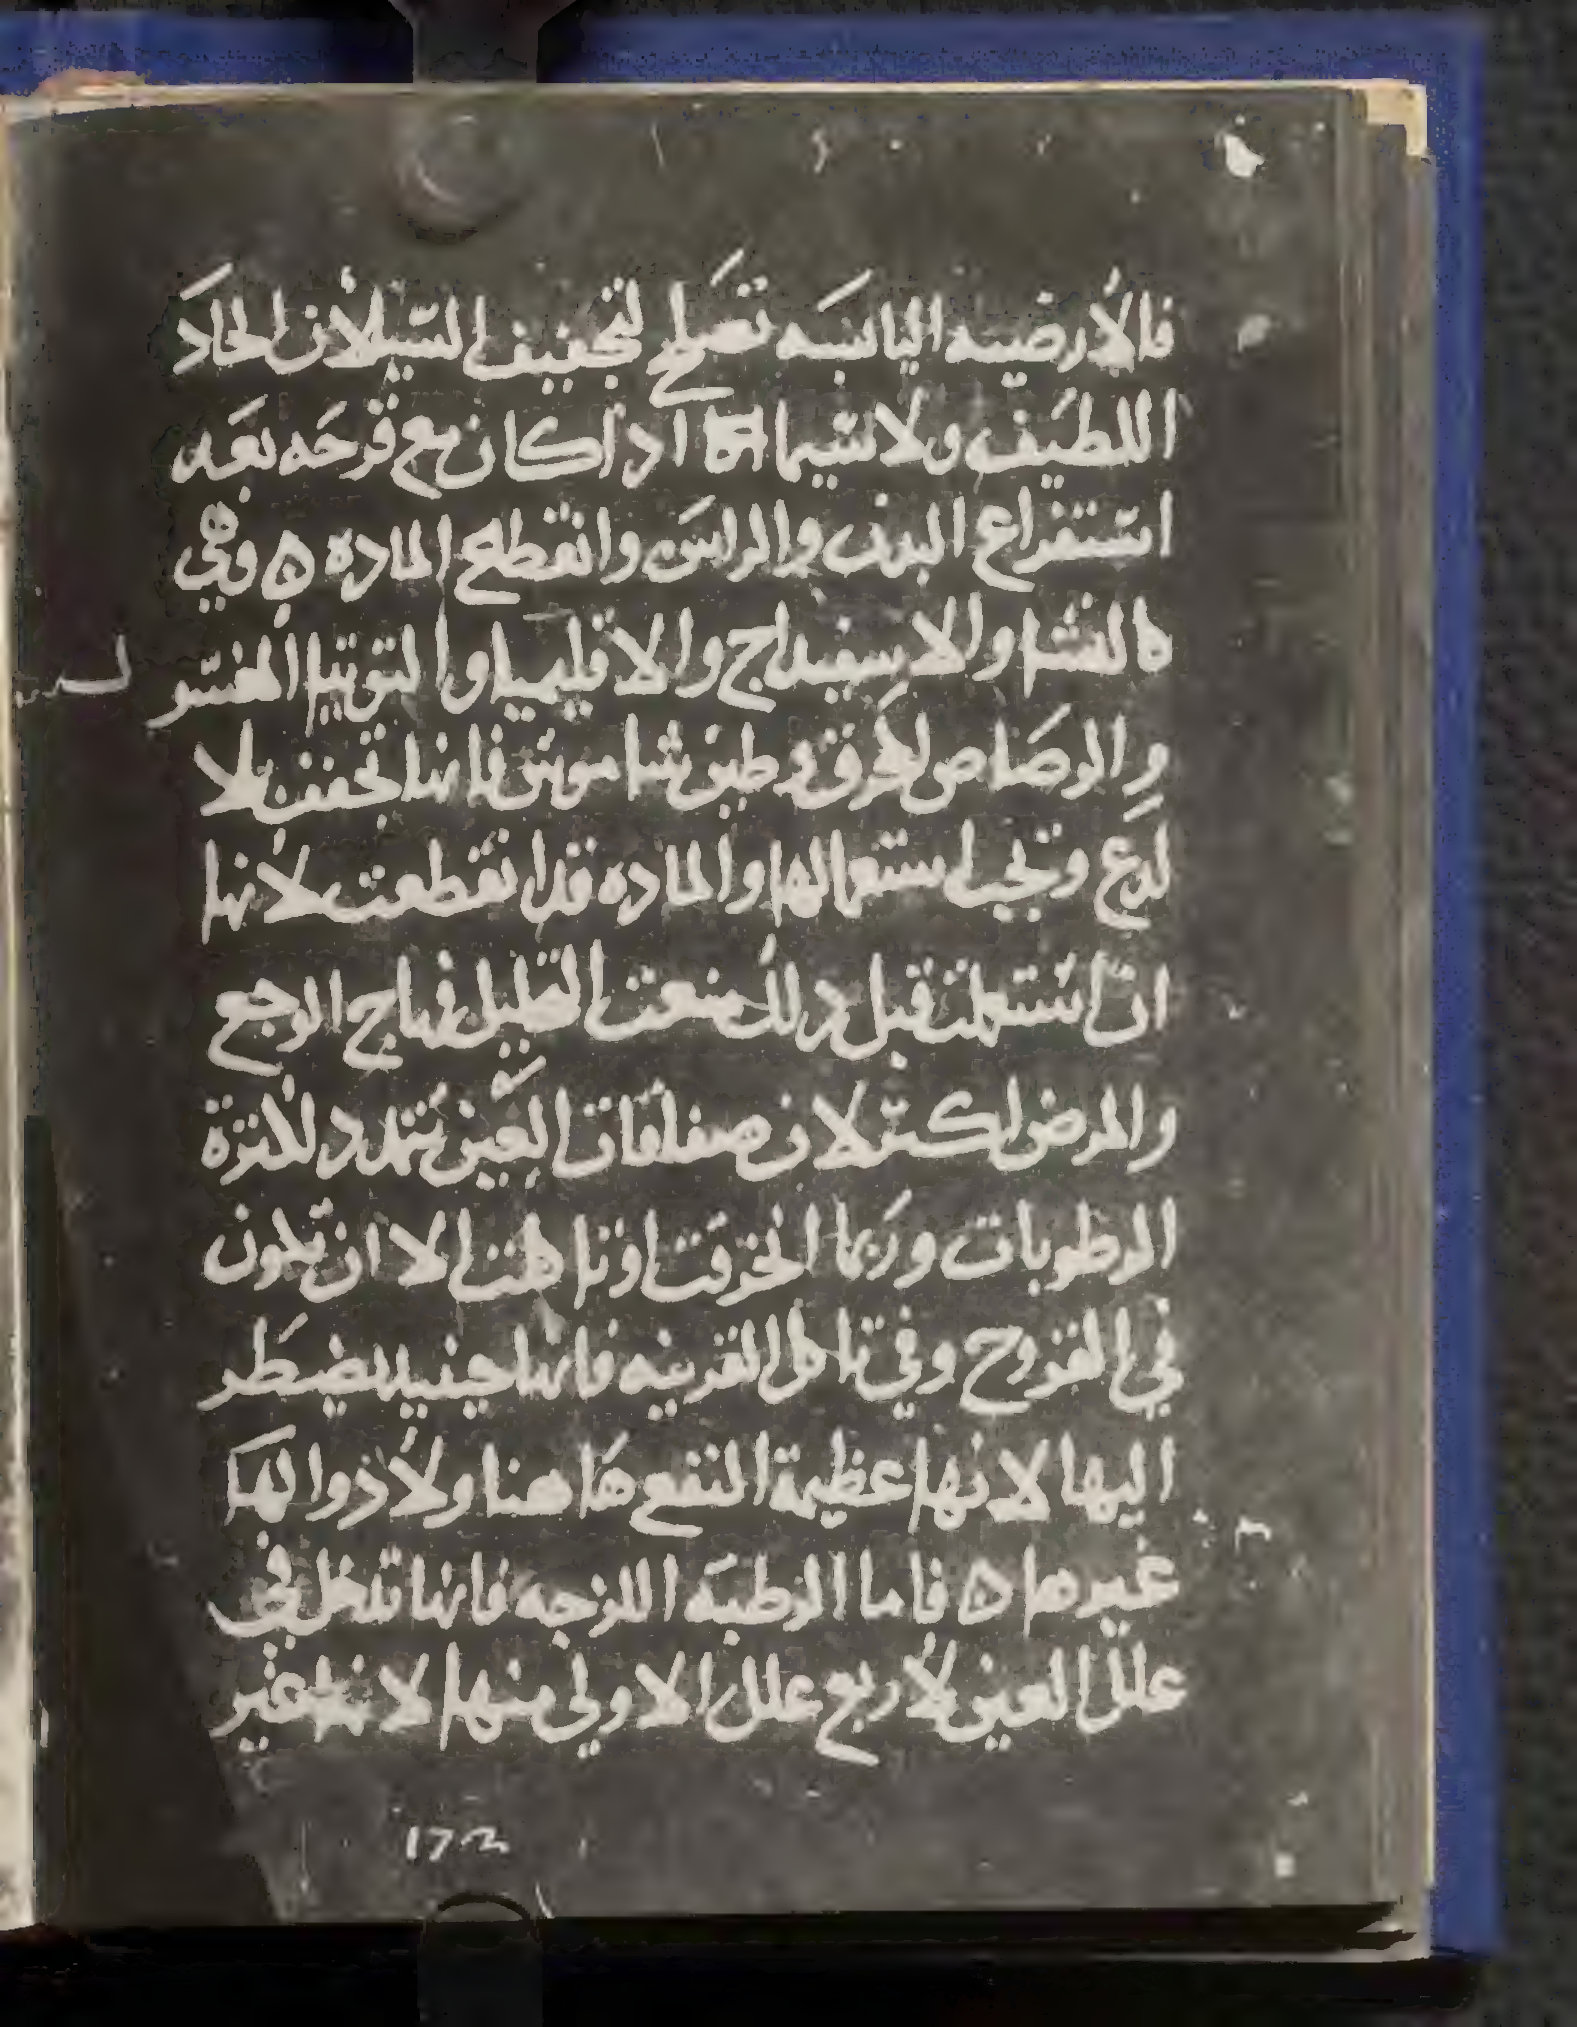 فالأرضيه اليابسه تصلح لتجفيف السيلان الحاد
اللطيف ولا سيما اذا كان مع قرحه بعد
استفراغ البدن والراس وانقطع الماده ه وهي
كالنشا والاسفيداج والاقليميا والتوتيا المغسر
والرصاص المحرق وطين شاموس فانها تجفف بلا
لدع وتجب استعمالها والماده قد انقطعت لانها
ان استعملت قبل ذلك منعت التحليل فهاج الوجع
والمرض اكثر لان صفاقات العين تتمدد لكثرة
الرطوبات وربما انخرقت او تاكلت الا ان تكون
في القروح وفي تاكل القرنيه فانها حينيد يضطر
اليها لانها عظيمة النفع هاهنا ولا دوا لها
غيرها ه فاما الرطبة اللزجه فانها تدخل في
علل العين لاربع علل الاولي منها لانها تغير